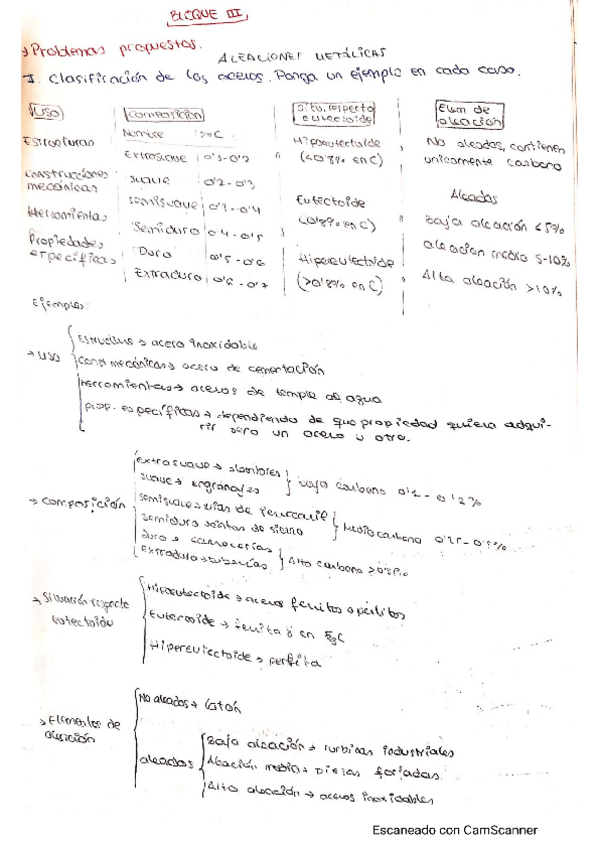 BLOQUE III
→ Problemas propuestos.
ALEACIONES METÁLICAS
1. Clasificación de los aceros. Ponga un ejemplo en cada caso.
Uso
Estructuras
Construcciones mecánicas
Herramientas
Propiedades específicas
Composición
Nombre %C
Extrasuave 0'1-0'2
suave 0'2-0'3
semisuave 0'3-0'4
Semiduro 0'4-0'5
Duro 0'5-0'6
Extraduro 0'6-0'7
Situ. respecto eutectoide
Hipoeutectoide
(<0'8% en C)
Eutectoide
(0'8% en C)
Hipereutectoide
(>0'8% en C)
Elem de aleación
No aleados, contienen
unicamente carbono
Aleados
Baja aleación <5%
aleacion media 5-10%
Alta aleación >10%
Ejemplos:
→ uso
Estructura → acero inoxidable
Const mecánicas → acero de cementación
Herramientas → aceros de temple al agua
prop. específicas → dependiendo de que propiedad quiera adqui-
rir sera un acero u otro.
→ Composición
extrasuave → alambres
suave → engranajes
Bajo carbono
semisuave → vías de ferrocarril
semiduro → cintas de sierra
Medio carbono
duro → carrocerías
Extraduro → tuberías
Alto carbono
→ Situación respecto
Eutectoide
Hipoeutectoide → aceros
Eutectoide →
Hipereutectoide → perlita
→ Elementos de
aleación
No aleados → Latón
aleados
Baja aleación → turbinas industriales
Aleación media → Piezas forjadas
Alta aleación → aceros inoxidables
Escaneado con CamScanner